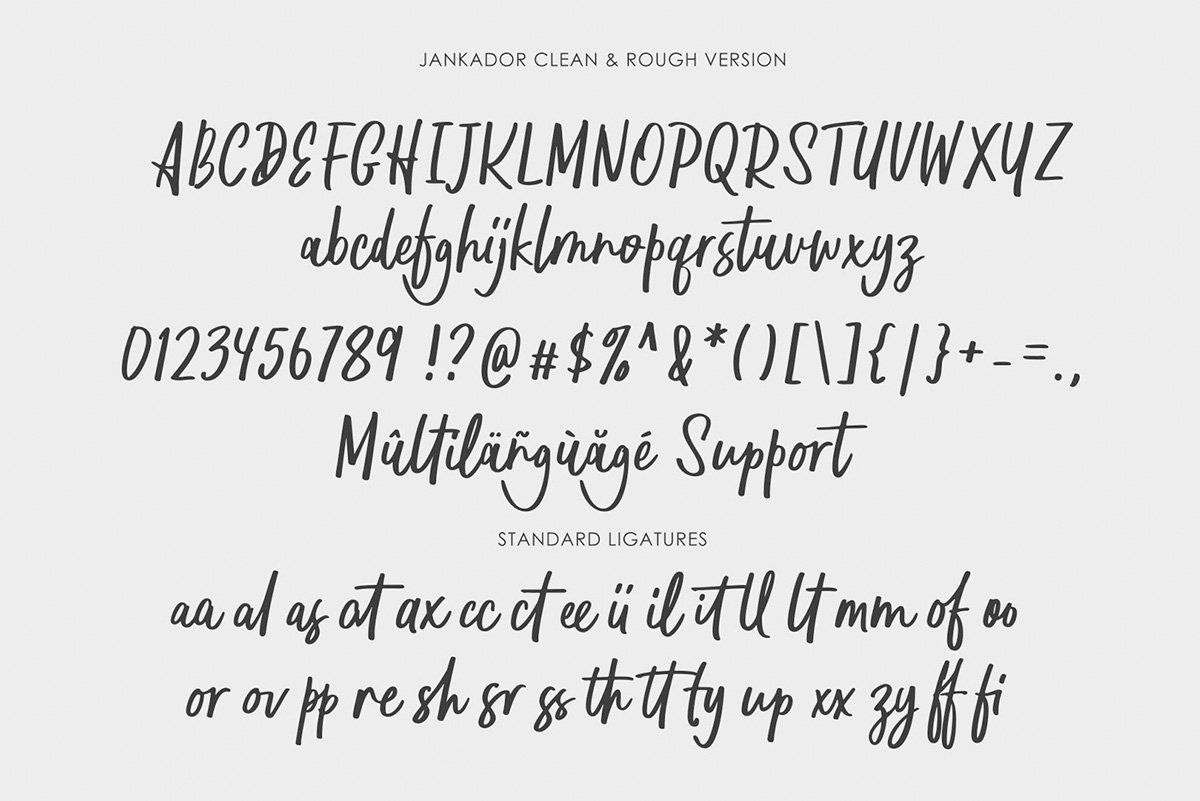 JANKADOR CLEAN & ROUGH VERSION
ABCDEFGHIJKLMNOPQRSTUVWXYZ
abcdefghijklmnopqrstuvwxyz
0123456789 !?@#$%^&*()[\]{/}+-=.,
Mûltiläñgùăgé Support
STANDARD LIGATURES
aa al as at ax cc ct ee ii il it ll lt mm of oo
or ov pp re sh sr ss th tt ty up xx zy ff fi